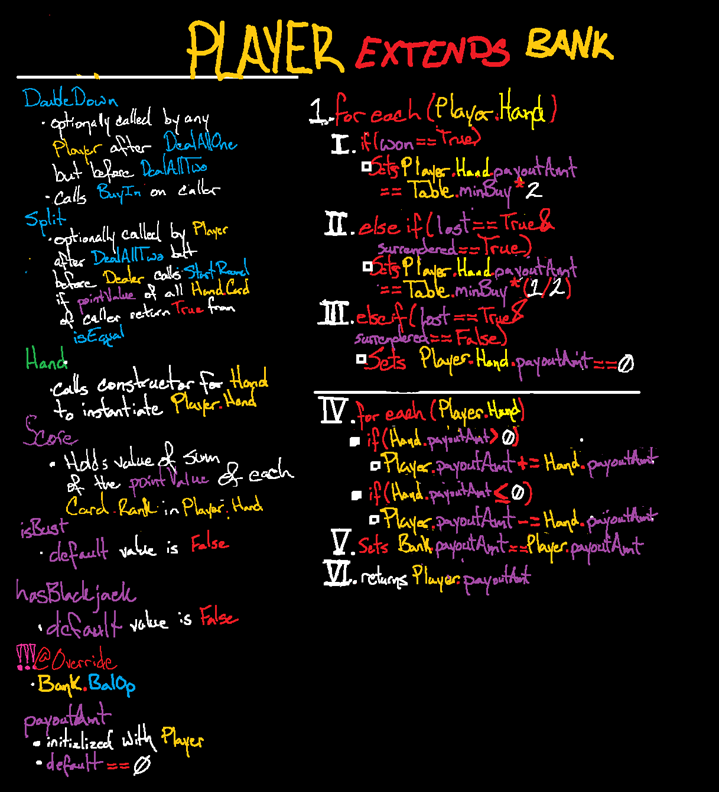 PLAYER EXTENDS BANK
DoubleDown
• optionally called by any
Player after DealAllOne
but before DealAllTwo
• calls BuyIn on caller
Split
• optionally called by Player
after DealAllTwo but
before Dealer calls StartRound
if pointValue of all Hand.Card
of caller return True from
isEqual
Hand
• calls constructor for Hand
to instantiate Player.Hand
Score
• Holds value of sum
of the pointValue of each
Card.Rank in Player.Hand
isBust
• default value is False
hasBlackjack
• default value is False
!!!@Override
• Bank.BalOp
payoutAmt
• initialized with Player
• default == 0
1. for each (Player.Hand)
I. if(won==True)
Sets Player.Hand.payoutAmt
== Table.minBuy*2
II. else if(lost==True&
surrendered==True)
Sets Player.Hand.payoutAmt
== Table.minBuy*(1/2)
III. elseif(lost==True&
surrendered==False)
Sets Player.Hand.payoutAmt==0
IV. for each (Player.Hand)
if(Hand.payoutAmt>0)
Player.payoutAmt += Hand.payoutAmt
if(Hand.payoutAmt≤0)
Player.payoutAmt -= Hand.payoutAmt
V. Sets Bank.payoutAmt==Player.payoutAmt
VI. returns Player.payoutAmt